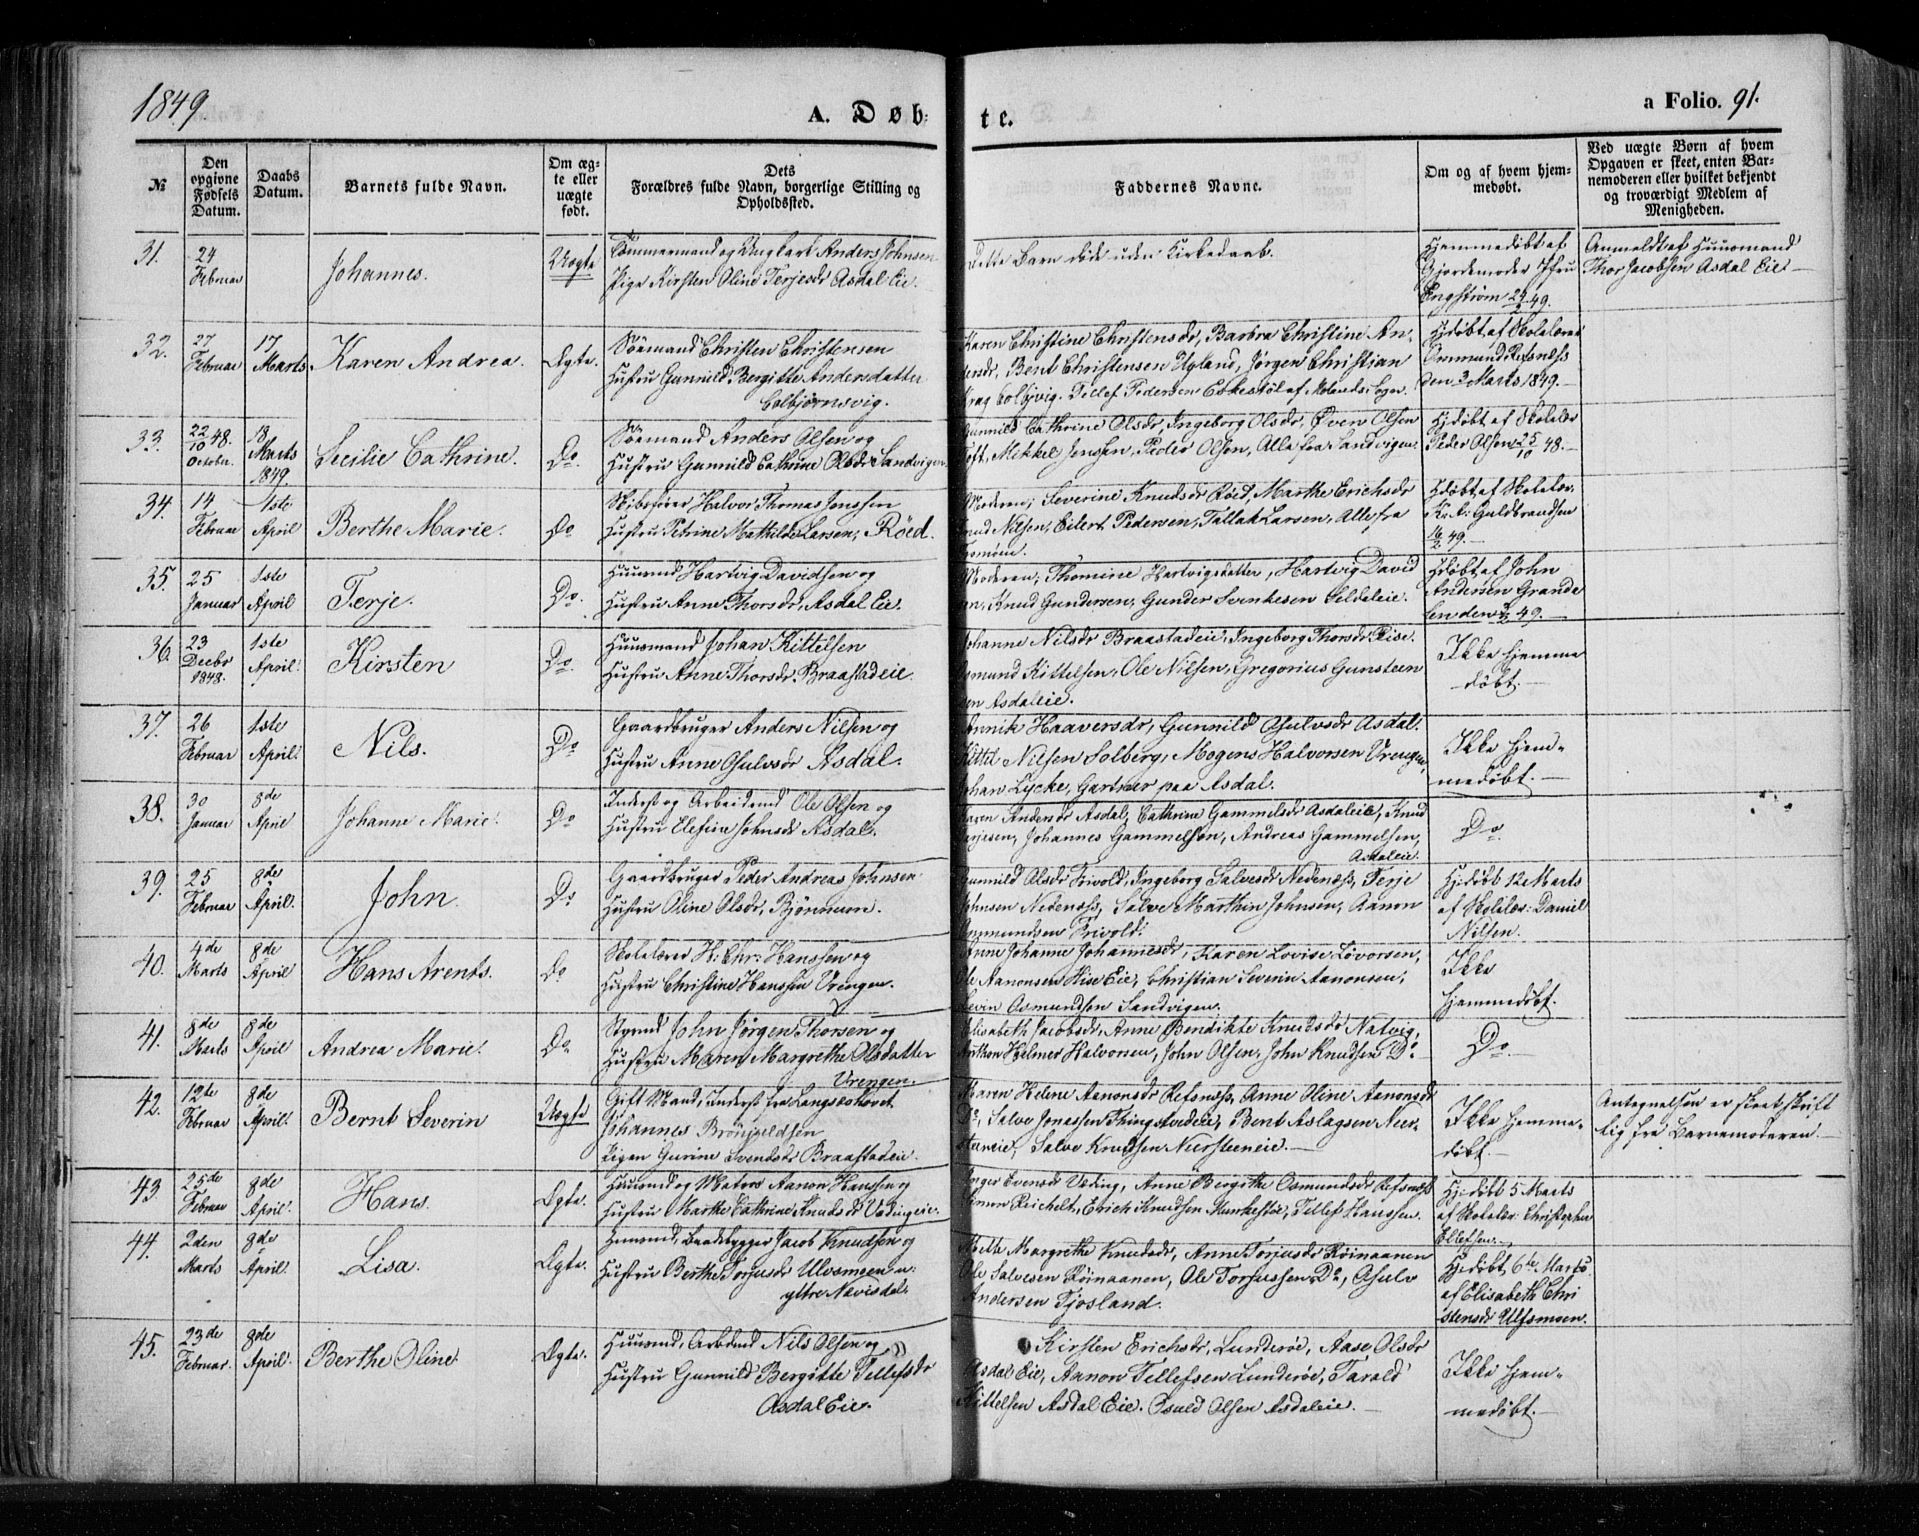 1849.
A. Døbte.
a Folio. 91.
№
Den opgivne Fødsels Datum.
Daabs Datum.
Barnets fulde Navn.
Om ægte eller uægte født.
Dets Forældres fulde Navn, borgerlige Stilling og Opholdssted.
Faddernes Navne.
Om og af hvem hjemmedøbt.
Ved uægte Børn af hvem Opgaven er skeet, enten Barnemoderen eller hvilket bekjendt og troværdigt Medlem af Menigheden.
31. 24 Februar
Johannes.
Uægte
Tømmermand og Ungkarl Anders Johnsen
Pige Kirsten Oline Terjesdr Asdal Eie.
Dette Barn døde uden Kirkedaab.
Hjemmedøbt af
Gjordemoder Jfru
Engstrøm 24/2 49.
Anmeldt af Huusmand
Thor Jacobsen Asdal Eie
32. 27 Februar
17 Marts
Karen Andrea.
Ægte.
Sømand Christen Christensen
Hustru Gunnild Bergitte Andersdatter
Colbjørnsvig.
Karen Christine Christensdr, Barbra Christine An-
dersdr, Bent Christensen Ugland, Jørgen Christian
Krag Colbjvig. Tellef Pedersen Eskestøl af Molands Sogn.
Hjdøbt af Skolelærer
Ommund Refsnæss
den 3 Marts 1849.
33. 22/10 48. October.
18 Marts 1849
Cecilie Cathrine.
Do
Sømand Anders Olsen og
Hustru Gunnild Cathrine Olsdr Sandvigen
Gunnild Cathrine Olsdr, Ingeborg Olsdr, Øven Olsen
Toft, Mekkel Jensen, Peder Olsen, Alle fra Sandvigen.
Hjdøbt af Skolelær
Peder Olsen 25/10 48.
34. 14 Februar
1ste April
Berthe Marie.
Do
Skibsfører Halvor Thomas Jonssen
Hustru Petrine Mathilde Larsen, Røed.
Moderen, Severine Knudsdr Røed, Marthe Erichsdr
Knud Nilsen, Eilert Pedersen, Tallak Larsen, Alle fra
Tromøen.
Hjdøbt af Skolelær.
K. A. Guldbrandsen
16/2 49.
35. 25 Januar
1ste April
Terje.
Do.
Huusmd Hartvig Davidsen og
Hustru Anne Thorsdr, Asdal Eie.
Moderen, Thomine Hartvigsdatter, Hartvig David
sen, Knud Gundersen, Gunder Svenkesen Seldaleie.
Hjdøbt af John
Andersen Granda
len den 49.
36. 23 Decbr 1848.
1ste April
Kirsten
Do.
Huusmand Johan Kittelsen
Hustru Anne Thorsdr. Braastadeie.
Johanne Nilsdr Braastadeie, Ingeborg Thorsdr Rise.
Osmund Kittelsen, Ole Nilsen, Gregorius Gunsteen
sen Asdaleie.
Ikke hjemme
døbt.
37. 26 Februar
1ste April.
Nils.
Do
Gaardbruger Anders Nilsen og
Hustru Anne Osulvsdr Asdal.
Annik Haaversdr, Gunnild Osulvsdr Asdal.
Kittil Nilsen Solberg, Mogens Halvorsen Vrengen,
Johan Lycke, Gartner paa Asdal.
Ikke hjem-
medøbt.
38. 30 Januar
8de April
Johanne Marie.
Do
Inderst og Arbeidsmd Ole Olsen og
Hustru Elefine Johnsdr Asdal.
Karen Andersdr Asdal, Cathrine Gammelsdr Asdaleie, Knud
Terjesen, Johannes Gammelsen, Andreas Gammelsen,
Asdaleie.
Do.
39. 25 Februar
8de April.
John.
Do
Gaardbruger Peder Andreas Johnsen
Hustru Oline Olsdr, Bjønmoen.
Gunnild Olsdr Frivold, Ingeborg Salvesdr Nedenæss, Terje
Johnsen Nedenæss, Salve Marthin Johnsen, Aanon
Ommundsen Frivold.
Hjdøbt 12 Marts
af Skolelær: Daniel
Nilsen.
40. 4de Marts
8de April
Hans Arents.
Do
Skolelærer H. Chr. Hanssen og
Hustru Christine Hanssen Vrengen.
Anne Johanne Johannesdr, Karen Lovise Løvorsen,
Ole Aanonsen Hise Eie, Christian Severin Aanonsen,
Levin Osmundsen Sandvigen.
Ikke
hjemmedøbt.
41. 8de Marts
8de April
Andrea Marie.
Do.
Styrmd John Jørgen Thorsen og
Hustru Maren Margrethe Olsdatter
Vrengen.
Elisabeth Jacobsdr, Anne Bendikte Knudsdr Natvig,
Anthon Helmer Halvorsen, John Olsen, John Knudsen Do.
Do.
42. 12te Februar
8de April
Bernt Severin
Uægte
Gift Mand, Inderst fra Langsæhovet
Johannes Brönjeldsen
Pigen Gurine Svendsdr Braastadeie.
Maren Helene Aanonsdr Refsnæss, Anne Oline Aanonsdr
Do, Salve Jonassen Thingstvedeie, Bent Aslagsen Nær-
steneie, Salve Knudsen Nærsteneie.
Ikke hjemme-
døbt.
Antegnelsen er skeet skrift
lig fra Barnemoderen
43. 25de Februar
8de April.
Hans.
Ægte.
Huusmd og Matros Aanon Hanssen og
Hustru Marthe Cathrine Knudsdr Vedingeie.
Inger Evensdr Veding, Anne Bergithe Osmundsdr Refsnæss
Simon Reichelt, Erich Knudsen Munkestøe, Tellef Hanssen.
Hjdøbt 5 Marts
af Skolelær. Christopher
Ellefsen.
44. 2den Marts
8de April.
Lisa.
Ægte.
Huusmd, Baadebygger Jacob Knudsen og
Hustru Berthe Torjusdr Ulvsmoen u.
ytre Nævisdal.
Mette Margrethe Knudsdr, Anne Torjusdr Røinaanen
Ole Salvesen Røinaanen, Ole Torjussen Do, Osulv
Andersen Tjosland.
Hjdøbt 6te Marts
af Elisabeth Chri
stensdr Ulfsmoen.
45. 23de Februar.
8de April.
Berthe Oline
Ægte.
Huusmd, Arbdsmd Nils Olsen og
Hustru Gunnild Bergitte Tellefsdr
Asdal Eie.
Kirsten Erichsdr, Lunderøe, Aase Olsdr
Asdal Eie, Aanon Tellefsen Lunderøe, Tarald
Kittelsen Asdal Eie. Osuld Olsen Asdaleie.
Ikke hjem-
medøbt.